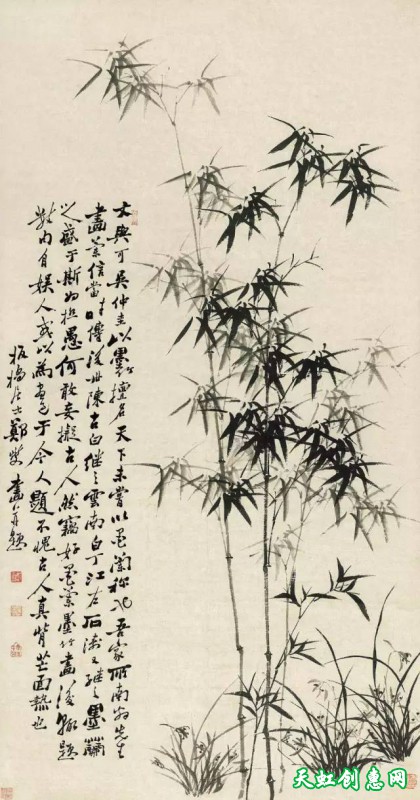 文與可吳仲圭以墨竹擅名天下未嘗以墨蘭稱也吾家所南翁先生
畫蘭信當時傳後世陳古白繼之雲南白丁江左石濤又繼之墨蘭
之盛于斯為極愚何敢妄擬古人然竊好墨蘭墨竹畫後輒題
數句自娛人或以為畫足于今人題不愧古人真背芒面熱也
板橋居士鄭燮畫并題
天虹创惠网